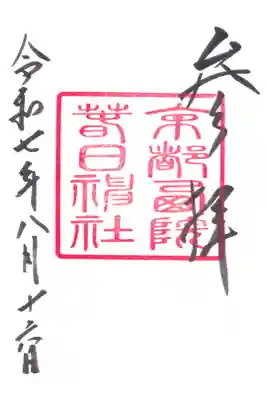 奉拝
京都西院
春日神社
令和七年八月十六日